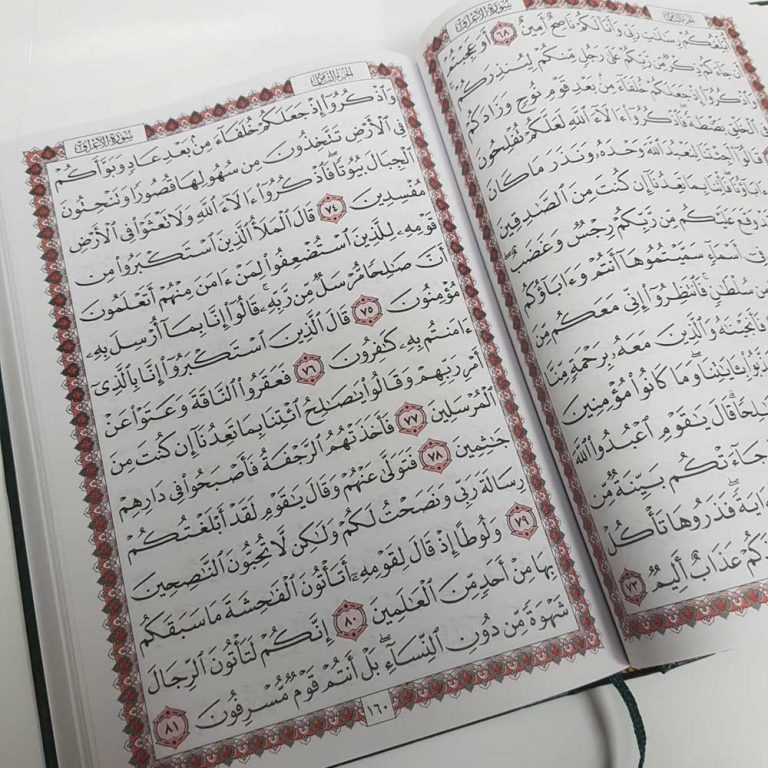 سورة الأعراف
الجزء الثامن
أُبَلِّغُكُمْ رِسَٰلَٰتِ رَبِّي وَأَنَا۠ لَكُمْ نَاصِحٌ أَمِينٌ ٦٨ أَوَعَجِبْتُمْ
أَن جَآءَكُمْ ذِكْرٌ مِّن رَّبِّكُمْ عَلَىٰ رَجُلٍ مِّنكُمْ لِيُنذِرَكُمْ
وَٱذْكُرُوٓا۟ إِذْ جَعَلَكُمْ خُلَفَآءَ مِنۢ بَعْدِ قَوْمِ نُوحٍ وَزَادَكُمْ
فِي ٱلْخَلْقِ بَصْۜطَةً فَٱذْكُرُوٓا۟ ءَالَآءَ ٱللَّهِ لَعَلَّكُمْ تُفْلِحُونَ
قَالُوٓا۟ أَجِئْتَنَا لِنَعْبُدَ ٱللَّهَ وَحْدَهُۥ وَنَذَرَ مَا كَانَ
ءَابَآؤُنَا فَأْتِنَا بِمَا تَعِدُنَآ إِن كُنتَ مِنَ ٱلصَّٰدِقِينَ
قَدْ وَقَعَ عَلَيْكُم مِّن رَّبِّكُمْ رِجْسٌ وَغَضَبٌ
فِىٓ أَسْمَآءٍ سَمَّيْتُمُوهَآ أَنتُمْ وَءَابَآؤُكُم
مِن سُلْطَٰنٍ فَٱنتَظِرُوٓا۟ إِنِّى مَعَكُم مِّنَ
فَأَنجَيْنَٰهُ وَٱلَّذِينَ مَعَهُۥ بِرَحْمَةٍ مِّنَّا
بِـَٔايَٰتِنَا وَمَا كَانُوا۟ مُؤْمِنِينَ
صَٰلِحًا قَالَ يَٰقَوْمِ ٱعْبُدُوا۟ ٱللَّهَ
جَآءَتْكُم بَيِّنَةٌ مِّن
ءَايَةً فَذَرُوهَا تَأْكُلْ
عَذَابٌ أَلِيمٌ ٧٣
الجزء الثامن
سورة الأعراف
وَٱذْكُرُوٓا۟ إِذْ جَعَلَكُمْ خُلَفَآءَ مِنۢ بَعْدِ عَادٍ وَبَوَّأَكُمْ
فِى ٱلْأَرْضِ تَتَّخِذُونَ مِن سُهُولِهَا قُصُورًا وَتَنْحِتُونَ
ٱلْجِبَالَ بُيُوتًا فَٱذْكُرُوٓا۟ ءَالَآءَ ٱللَّهِ وَلَا تَعْثَوْا۟ فِى ٱلْأَرْضِ
مُفْسِدِينَ ٧٤ قَالَ ٱلْمَلَأُ ٱلَّذِينَ ٱسْتَكْبَرُوا۟ مِن
قَوْمِهِۦ لِلَّذِينَ ٱسْتُضْعِفُوا۟ لِمَنْ ءَامَنَ مِنْهُمْ أَتَعْلَمُونَ
أَنَّ صَٰلِحًا مُّرْسَلٌ مِّن رَّبِّهِۦ قَالُوٓا۟ إِنَّا بِمَآ أُرْسِلَ بِهِۦ
مُؤْمِنُونَ ٧٥ قَالَ ٱلَّذِينَ ٱسْتَكْبَرُوٓا۟ إِنَّا بِٱلَّذِىٓ
ءَامَنتُم بِهِۦ كَٰفِرُونَ ٧٦ فَعَقَرُوا۟ ٱلنَّاقَةَ وَعَتَوْا۟ عَنْ
أَمْرِ رَبِّهِمْ وَقَالُوا۟ يَٰصَٰلِحُ ٱئْتِنَا بِمَا تَعِدُنَآ إِن كُنتَ مِنَ
ٱلْمُرْسَلِينَ ٧٧ فَأَخَذَتْهُمُ ٱلرَّجْفَةُ فَأَصْبَحُوا۟ فِى دَارِهِمْ
جَٰثِمِينَ ٧٨ فَتَوَلَّىٰ عَنْهُمْ وَقَالَ يَٰقَوْمِ لَقَدْ أَبْلَغْتُكُمْ
رِسَالَةَ رَبِّى وَنَصَحْتُ لَكُمْ وَلَٰكِن لَّا تُحِبُّونَ ٱلنَّٰصِحِينَ
٧٩ وَلُوطًا إِذْ قَالَ لِقَوْمِهِۦٓ أَتَأْتُونَ ٱلْفَٰحِشَةَ مَا سَبَقَكُم
بِهَا مِنْ أَحَدٍ مِّنَ ٱلْعَٰلَمِينَ ٨٠ إِنَّكُمْ لَتَأْتُونَ ٱلرِّجَالَ
شَهْوَةً مِّن دُونِ ٱلنِّسَآءِ بَلْ أَنتُمْ قَوْمٌ مُّسْرِفُونَ ٨١
١٦٠